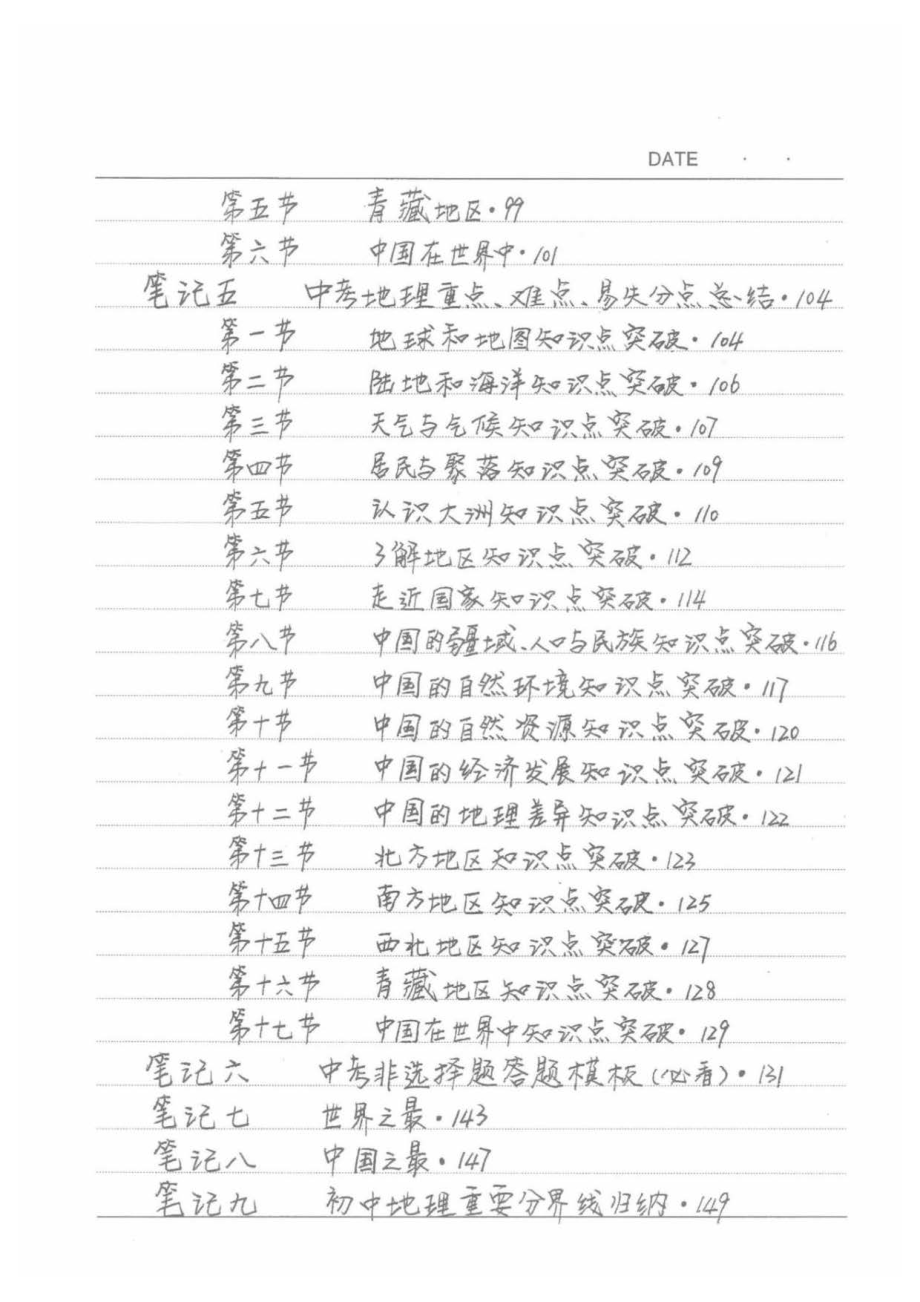 DATE · ·
第五节 青藏地区·99
第六节 中国在世界中·101
笔记五 中考地理重点、难点、易失分点总结·104
第一节 地球和地图知识点突破·104
第二节 陆地和海洋知识点突破·106
第三节 天气与气候知识点突破·107
第四节 居民与聚落知识点突破·109
第五节 认识大洲知识点突破·110
第六节 了解地区知识点突破·112
第七节 走近国家知识点突破·114
第八节 中国的疆域、人口与民族知识点突破·116
第九节 中国的自然环境知识点突破·117
第十节 中国的自然资源知识点突破·120
第十一节 中国的经济发展知识点突破·121
第十二节 中国的地理差异知识点突破·122
第十三节 北方地区知识点突破·123
第十四节 南方地区知识点突破·125
第十五节 西北地区知识点突破·127
第十六节 青藏地区知识点突破·128
第十七节 中国在世界中知识点突破·129
笔记六 中考非选择题答题模板(必看)·131
笔记七 世界之最·143
笔记八 中国之最·147
笔记九 初中地理重要分界线归纳·149